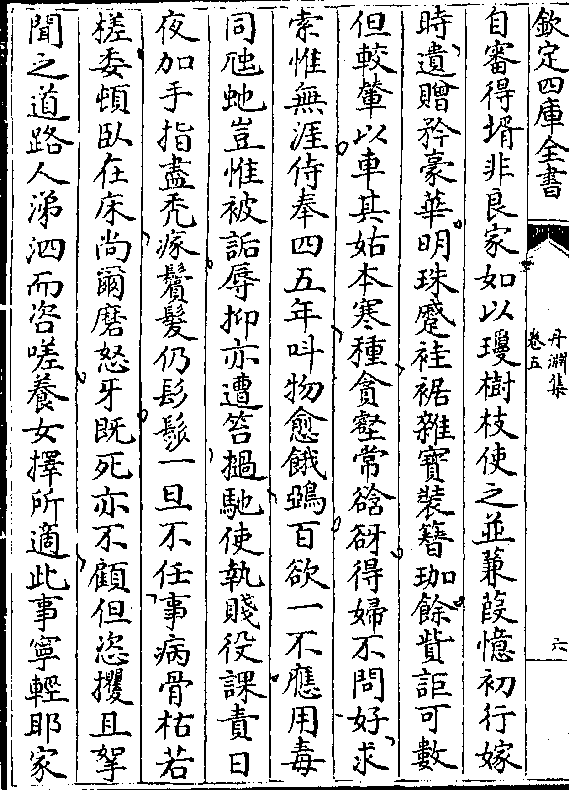 欽定四庫全書
丹淵集
卷五
六
自審得壻非良家如以瓊樹枝使之並蒹葭憶初行嫁
時遺贈矜豪華明珠蹙袿裾雜寶裝簪珈餘貲詎可數
但較輦以車其姑本寒種貪壑常谽谺得婦不問好求
索惟無涯侍奉四五年呌物愈餓鵶百欲一不應用毒
同虺虵豈惟被詬辱抑亦遭笞撾馳使執賤役課責日
夜加手指盡秃瘃鬢髮仍髟髿一旦不任事病骨枯若
槎委頓臥在床尚爾磨怒牙既死亦不顧但恣攫且拏
聞之道路人涕泗而咨嗟養女擇所適此事寧輕耶家